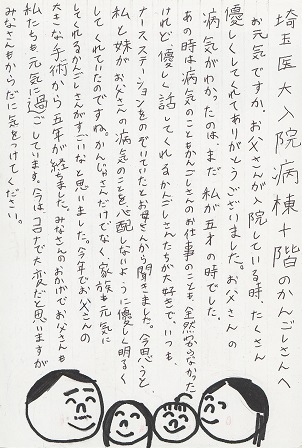 埼玉医大入院病棟十階のかんごしさんへ
お元気ですか。お父さんが入院している時、たくさん
優しくしてくれてありがとうございました。お父さんの
病気がわかったのは、まだ私が五才の時でした。
あの時は病気のこともかんごしさんのお仕事のことも全然分らなかった
けれど優しく話してくれるかんごしさんたちが大好きで、いつも
ナースステーションをのぞいていたとお母さんから聞きました。今思うと、
私と妹がお父さんの病気のことを心配しないように優しく明るく
してくれていたのですね。かんじゃさんだけでなく家族も元気に
してくれるかんごしさんがすごいなと思いました。今年でお父さんの
大きな手術から五年が経ちました。みなさんのおかげでお父さんも
私たちも元気に過ごしています。今はコロナで大変だと思いますが
みなさんもからだに気をつけてください。